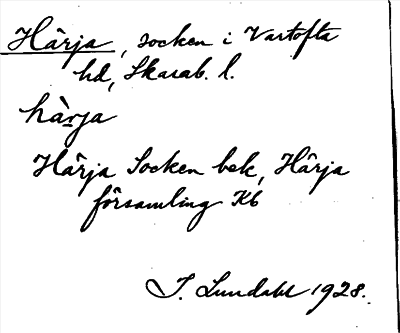 Härja, socken i Vartofta
hd, Skarab. l.
hàrja
Härja Socken bek, Härja
församling Kb
I. Lundahl 1928.